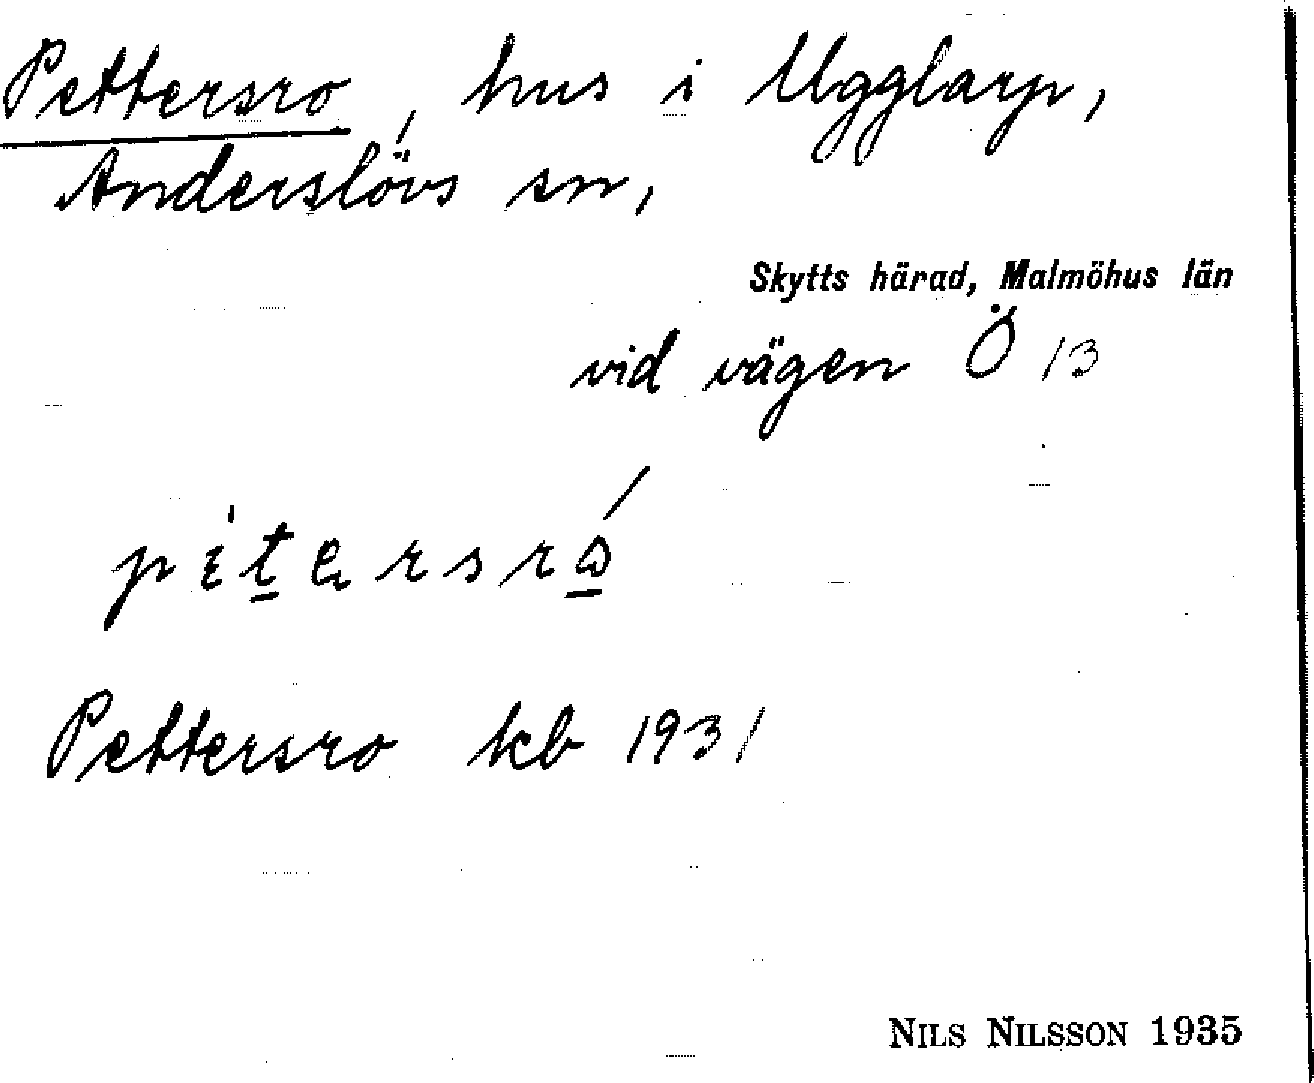 Pettersro, hus i Ugglarp,
Anderslövs sn,
Skytts härad, Malmöhus län
vid vägen Ö 13
Pettersro kb 1931
NILS NILSSON 1935